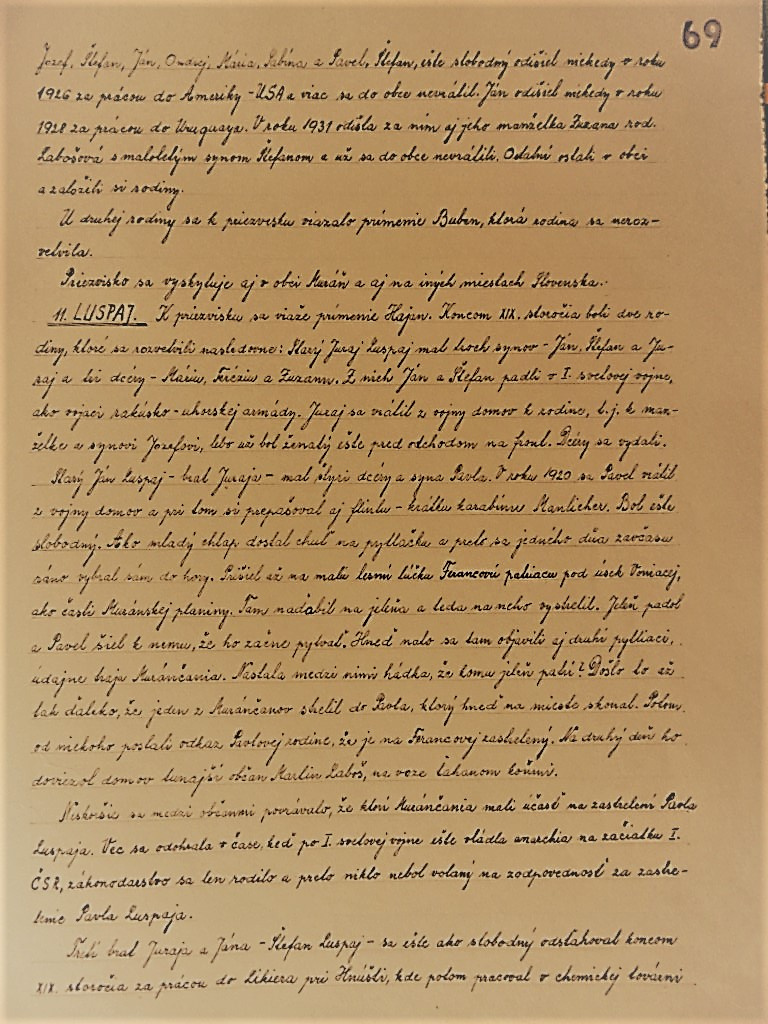 69
Jozef, Štefan, Ján, Ondrej, Mária, Sabína a Pavel. Štefan, ešte slobodný odišiel niekedy v roku
1926 za prácou do Ameriky - USA a viac sa do obce nevrátil. Ján odišiel niekedy v roku
1928 za prácou do Uruguaya. V roku 1931 odišla za ním aj jeho manželka Zuzana rod.
Labošová s maloletým synom Štefanom a už sa do obce nevrátili. Ostatní ostali v obci
a založili si rodiny.
U druhej rodiny sa k priezvisku viazalo prímenie Buben, ktorá rodina sa neroz-
vetvila.
Priezvisko sa vyskytuje aj v obci Muráň a aj na iných miestach Slovenska.
11. LUSPAJ. K priezvisku sa viaže prímenie Hajan. Koncom XIX. storočia boli dve ro-
diny, ktoré sa rozvetvili nasledovne: Starý Juraj Luspaj mal troch synov - Ján, Štefan a Ju-
raj a tri dcéry - Máriu, Teréziu a Zuzanu. Z nich Ján a Štefan padli v I. svetovej vojne,
ako vojaci rakúsko-uhorskej armády. Juraj sa vrátil z vojny domov k rodine, t.j. k man-
želke a synovi Jozefovi, lebo už bol ženatý ešte pred odchodom na front. Dcéry sa vydali.
Starý Ján Luspaj - brat Juraja - mal štyri dcéry a syna Pavla. V roku 1920 sa Pavel vrátil
z vojny domov a pri tom si prepašoval aj flintu - krátku karabínu Manlicher. Bol ešte
slobodný. Ako mladý chlap dostal chuť na pytliačku a preto sa jedného dňa zavčasu
ráno vybral sám do hory. Prišiel až na malú lesnú lúčku Ferancovú pod úsek Voniacej,
ako časti Muránskej planiny. Tam naďabil na jeleňa a teda na neho vystrelil. Jeleň padol
a Pavel šiel k nemu, že ho začne pytvať. Hneď nato sa tam objavili aj druhí pytliaci,
údajne traja Muránčania. Nastala medzi nimi hádka, že komu jeleň patrí? Došlo to až
tak ďaleko, že jeden z Muránčanov strelil do Pavla, ktorý hneď na mieste skonal. Potom
od niekoho poslali odkaz Pavlovej rodine, že je na Ferancovej zastrelený. Na druhý deň ho
doviezol domov tunajší občan Martin Laboš, na voze ťahanom koňmi.
Neskoršie sa medzi občanmi povrávalo, že ktorí Muránčania mali účasť na zastrelení Pavla
Luspaja. Vec sa odohrala v čase, keď po I. svetovej vojne ešte vládla anarchia na začiatku I.
ČSR, zákonodarstvo sa len rodilo a preto nikto nebol volaný na zodpovednosť za zastre-
lenie Pavla Luspaja.
Tretí brat Juraja a Jána - Štefan Luspaj - sa ešte ako slobodný odsťahoval koncom
XIX. storočia za prácou do Likiera pri Hnúšti, kde potom pracoval v chemickej továrni